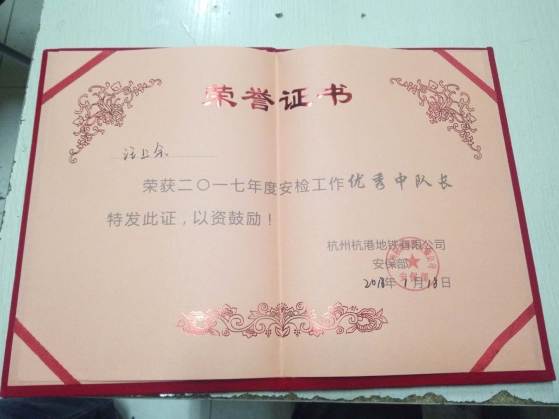 荣誉证书
荣获二〇一七年度安检工作优秀中队长
特发此证，以资鼓励！
杭州杭港地铁有限公司
安保部
2018年1月18日